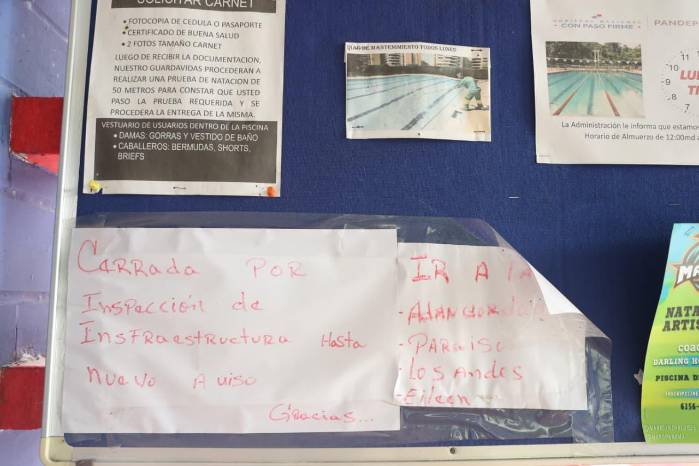 SOLICITAR CARNET
• FOTOCOPIA DE CEDULA O PASAPORTE
• CERTIFICADO DE BUENA SALUD
• 2 FOTOS TAMAÑO CARNET
LUEGO DE RECIBIR LA DOCUMENTACION,
NUESTRO GUARDAVIDAS PROCEDERAN A
REALIZAR UNA PRUEBA DE NATACION DE
50 METROS PARA CONSTAR QUE USTED
PASO LA PRUEBA REQUERIDA Y SE
PROCEDERA LA ENTREGA DE LA MISMA.
VESTUARIO DE USUARIOS DENTRO DE LA PISCINA
• DAMAS: GORRAS Y VESTIDO DE BAÑO
• CABALLEROS: BERMUDAS, SHORTS,
BRIEFS
DIAS DE MANTENIMIENTO TODOS LUNES
GOBIERNO NACIONAL
CON PASO FIRME
PANDEP
11
10
9
8
7
LU
La Administración le informa que estamo
Horario de Almuerzo de 12:00md a
CARRada POR
InsPección de
InsFRaestRuctuRa Hasta
nuevo Auiso
Gracias...
IR A
- PARAISO
- Los Andes
- Eileen
MA
NATA
ARTIS
COAC
DARLING H
PISCINA D
6156-